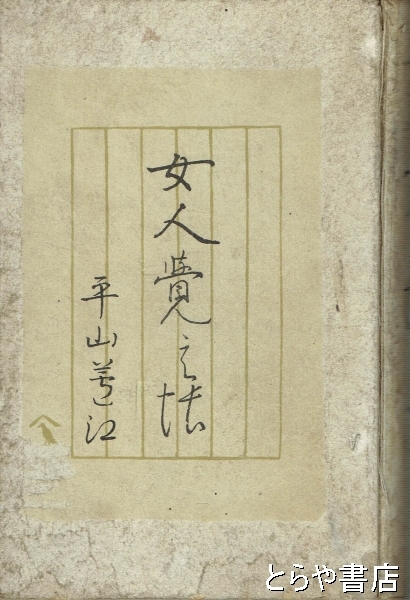 女人覺之帖
平山蘆江
とらや書店